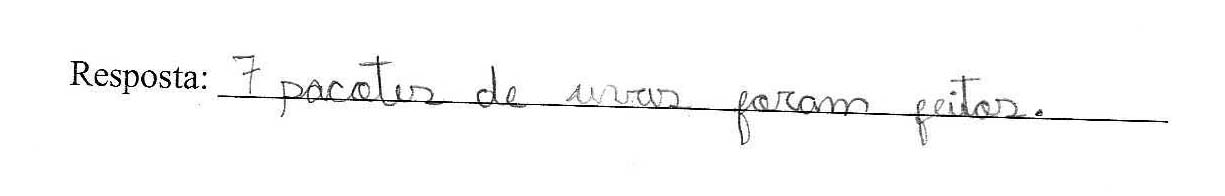 Resposta: 7 pacotes de uvas foram feitos.